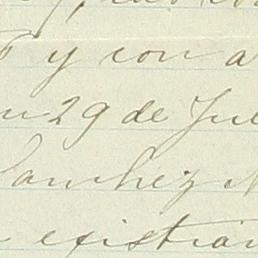 y con a
29 de Jul
Sanchez
existian